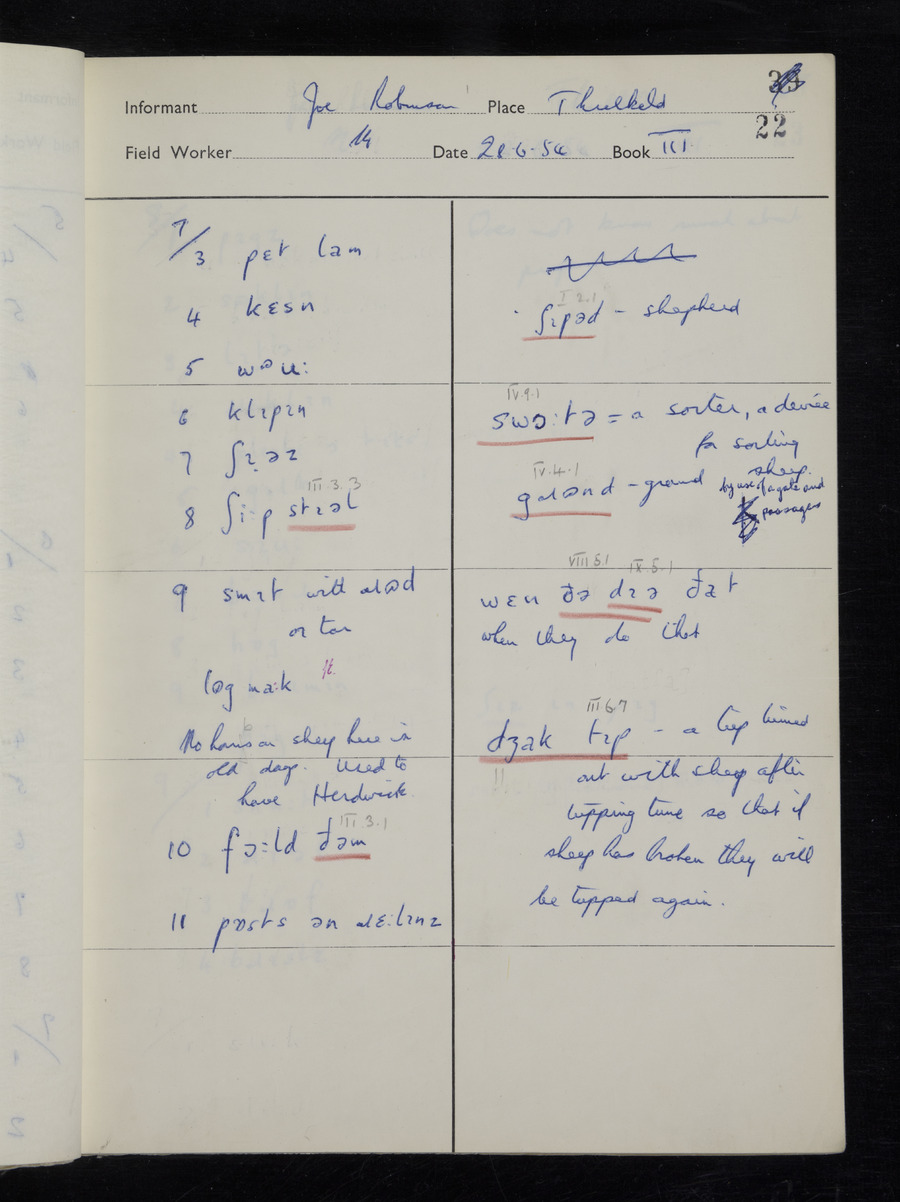 Informant Joe Robinson Place Threlkeld
22
Field Worker Date 28·6·54 Book III
7/3 pɛt lam
4 kɛsn
5 wɒu:
6 klɪpɪn
7 ʃɪəz
III.3.3
8 ʃi:p stɪəl
9 smɪt with ɹɒd
or tar
lɒg ma:k
No horns on sheep here in
old days. Used to
have Herdwick
III.3.1
10 fɔ:ld ðəm
11 pɒsts ən ɹɛ:lɪnz
I 2.1
ʃɪpəd – shepherd
IV.9.1
swɔ:tə = a sorter, a device
for sorting
sheep.
by use of a gate and
passages
IV.4.1
– ground
VIII 5.1 IX.5.1
wɛn ðə dɪə ðat
when they do that
III 6.7
dʒak tɪp – a tup turned
out with sheep after
tupping time so that if
sheep has broken they will
be tupped again.